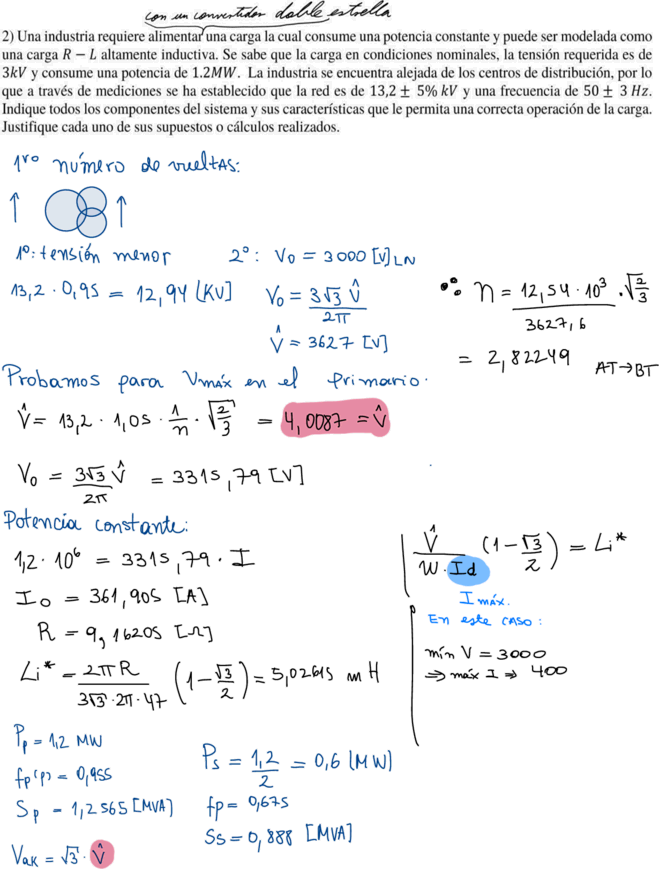 con un convertidor doble estrella
2) Una industria requiere alimentar una carga la cual consume una potencia constante y puede ser modelada como
una carga R − L altamente inductiva. Se sabe que la carga en condiciones nominales, la tensión requerida es de
3kV y consume una potencia de 1.2MW. La industria se encuentra alejada de los centros de distribución, por lo
que a través de mediciones se ha establecido que la red es de 13,2 ± 5% kV y una frecuencia de 50 ± 3 Hz.
Indique todos los componentes del sistema y sus características que le permita una correcta operación de la carga.
Justifique cada uno de sus supuestos o cálculos realizados.
1ro número de vueltas:
1º: tensión menor
13,2 · 0,95 = 12,94 [KV]
2º: V0 = 3000 [V]LN
V0 = 3√3 V̂ / 2π
V̂ = 3627 [V]
∴ n = 12,54 · 10³ / 3627,6 · √(2/3)
= 2,82249 AT→BT
Probamos para Vmáx en el primario.
V̂ = 13,2 · 1,05 · 1/n · √(2/3) = 4,0087 = V̂
V0 = 3√3 V̂ / 2π = 3315,79 [V]
Potencia constante:
1,2 · 10⁶ = 3315,79 · I
I0 = 361,905 [A]
R = 9,16205 [Ω]
Li* = 2πR / (3√3 · 2π · 47) (1 − √3/2) = 5,02615 mH
V̂ / (W · Id) (1 − √3/2) = Li*
Imáx.
En este caso:
mín V = 3000
⇒ máx I ⇒ 400
Pp = 1,2 MW
fp(p) = 0,955
Sp = 1,2565 [MVA]
VAK = √3 · V̂
Ps = 1,2/2 = 0,6 [MW]
fp = 0,675
Ss = 0,888 [MVA]